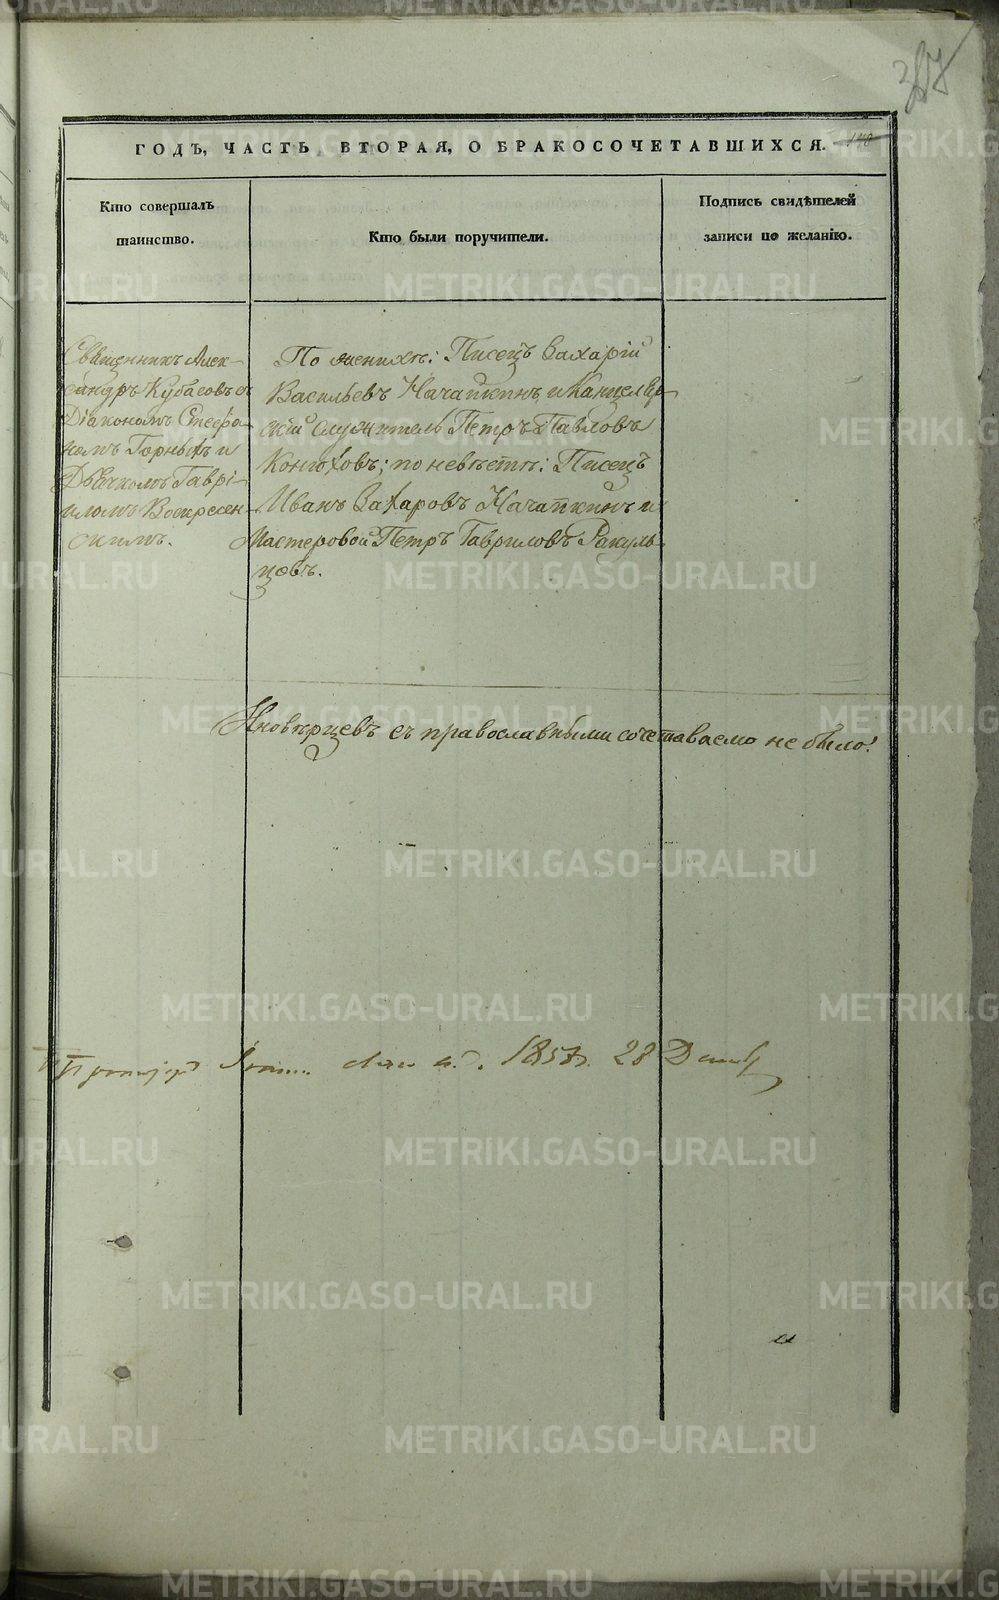 387
ГОДЪ, ЧАСТЬ ВТОРАЯ, О БРАКОСОЧЕТАВШИХСЯ.
Кто совершалъ
таинство.
Кто были поручители.
Подпись свидѣтелей
записи по желанію.
Священникъ Алек-
сандръ Кубасовъ съ
Діакономъ Стефа-
номъ Горныхъ и
Дьячкомъ Гаврі-
иломъ Воскресен-
скимъ.
По женихѣ: Писецъ Захарій
Васильевъ Начапкинъ и Канцеляр-
скій служитель Петръ Павловъ
Конюховъ; по невѣстѣ: Писецъ
Иванъ Захаровъ Начапкинъ и
Мастеровой Петръ Гавриловъ Ракуль-
цовъ.
Иновѣрцевъ съ православными сочетаваемо не было.
28
METRIKI.GASO-URAL.RU